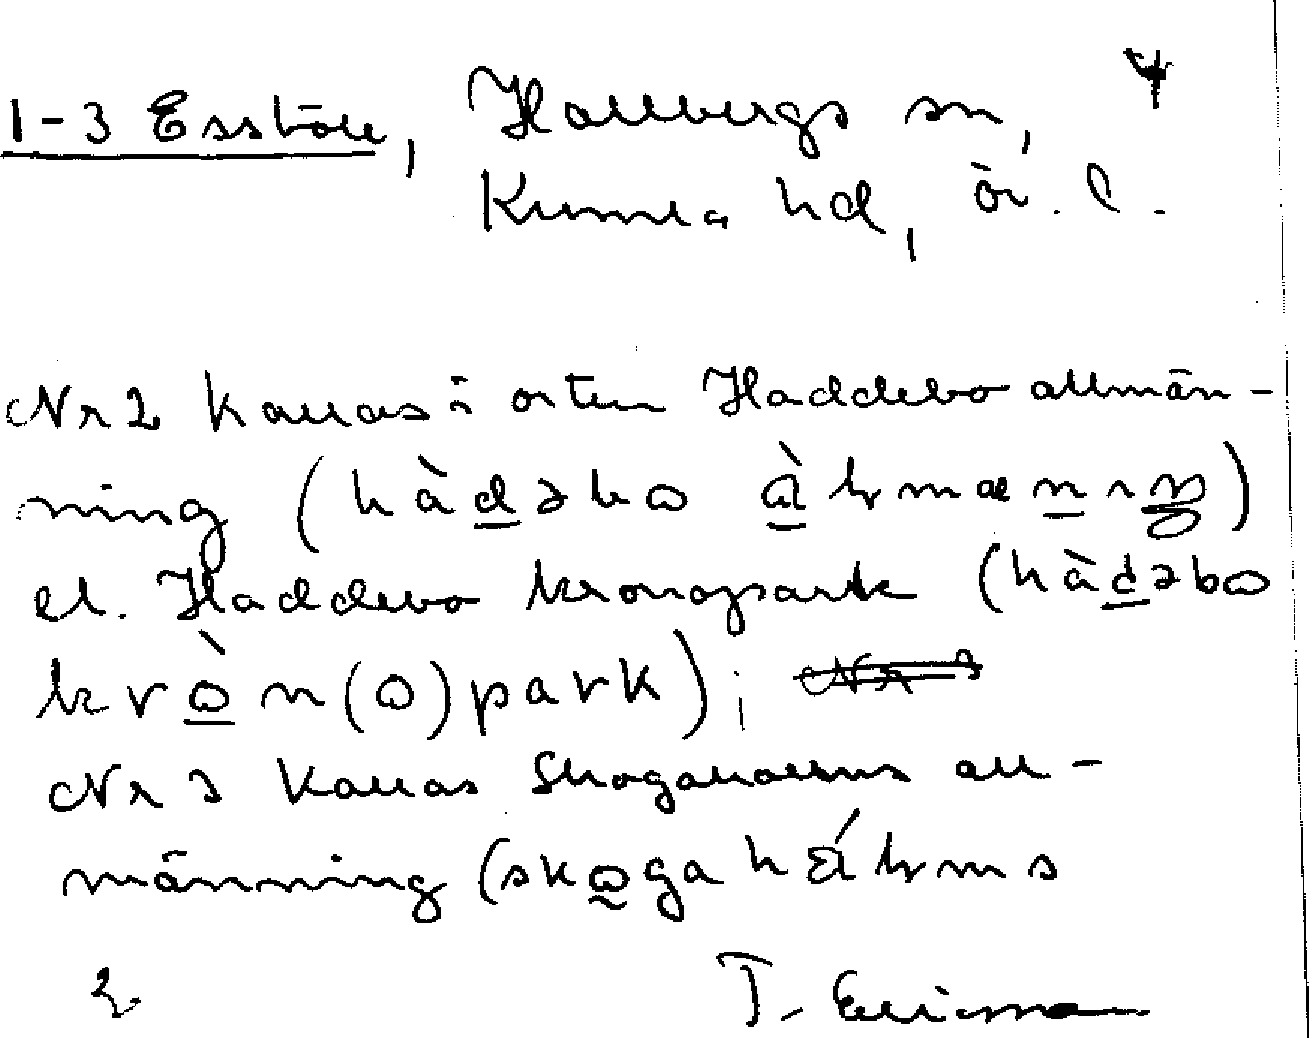 1-3 Esstäle, Hallsbergs sn, 4
Kumla hd, ör. l.
Nr 2 kallas i orten Haddebo allmän-
ning (hàdəbo àlmænıŋ)
el. Haddebo kronopark (hàdəbo
kròn(o)park); Nr 3
Nr 3 kallas Skogaholms all-
männing (skogahålms
T. Ericsson